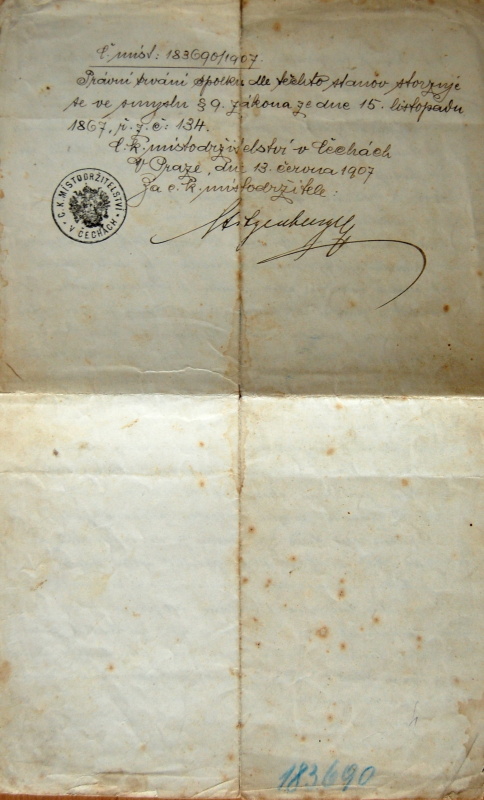 Č. míst: 183690/1907.
Právní trvání spolku dle těchto stanov stvrzuje
se ve smyslu § 9. zákona ze dne 15. listopadu
1867, ř. z. č: 134.
C. k. místodržitelství v Čechách
V Praze, dne 13. června 1907
Za c. k. místodržitele:
C. K. MÍSTODRŽITELSTVÍ
V ČECHÁCH
183690